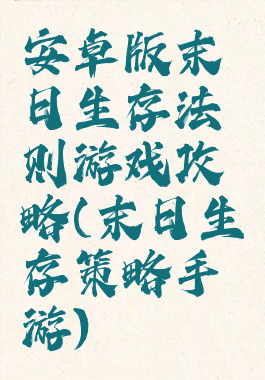 安卓版末
日生存法
则游戏攻
略(末日生
存策略手
游)